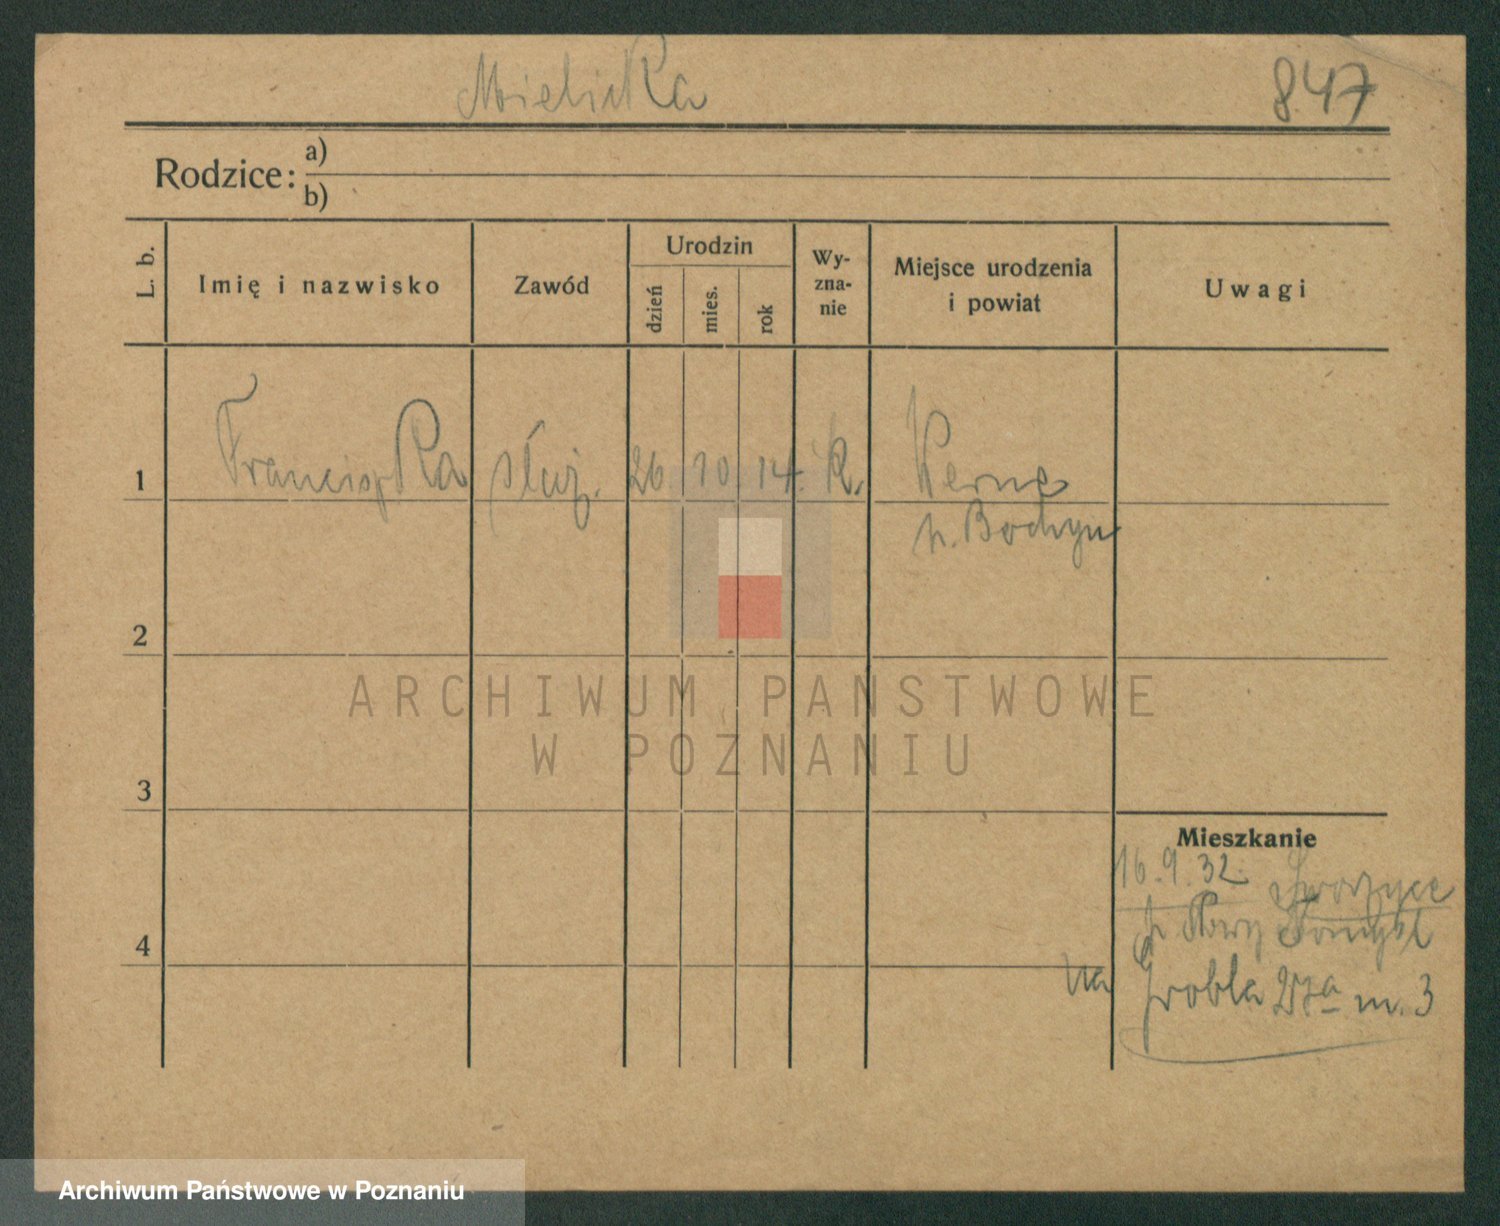 Mielicka 847
Rodzice: a)
b)
L. b. Imię i nazwisko Zawód Urodzin dzień mies. rok Wy-zna-nie Miejsce urodzenia i powiat Uwagi
1 Franciszka służ. 26 10 14. k. Werne
n. Bochym
2
ARCHIWUM PANSTWOWE
W POZNANIU
3
Mieszkanie
16.9.32.
4 p. Nowy Tomyśl
na Grobla 27a m. 3
Archiwum Państwowe w Poznaniu